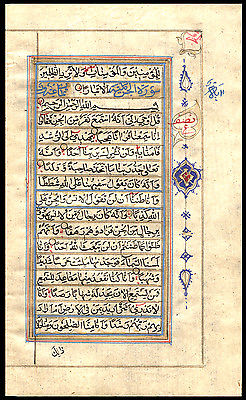 للمؤمنين والمؤمنات ولا تزد الظلمين
الا تبارا
بسم الله الرحمن الرحيم
قل اوحي الي انه استمع نفر من الجن فقا
لوا انا سمعنا قرانا عجبا يهدي الى الرشد
فامنا به ولن نشرك بربنا احدا وانه
تعالى جد ربنا ما اتخذ صاحبة ولا ولدا
وانه كان يقول سفيهنا على الله شططا
وانا ظننا ان لن تقول الانس والجن على
الله كذبا وانه كان رجال من الانس يعوذون
برجال من الجن فزادوهم رهقا وانهم
ظنوا كما ظننتم ان لن يبعث الله احدا وانا
لمسنا السماء فوجدناها ملئت حرسا شديدا
وشهبا وانا كنا نقعد منها مقاعد للسمع
فمن يستمع الان يجد له شهابا رصدا وانا
لا ندري اشر اريد بمن في الارض ام اراد
بهم ربهم رشدا وانا منا الصلحون ومنا